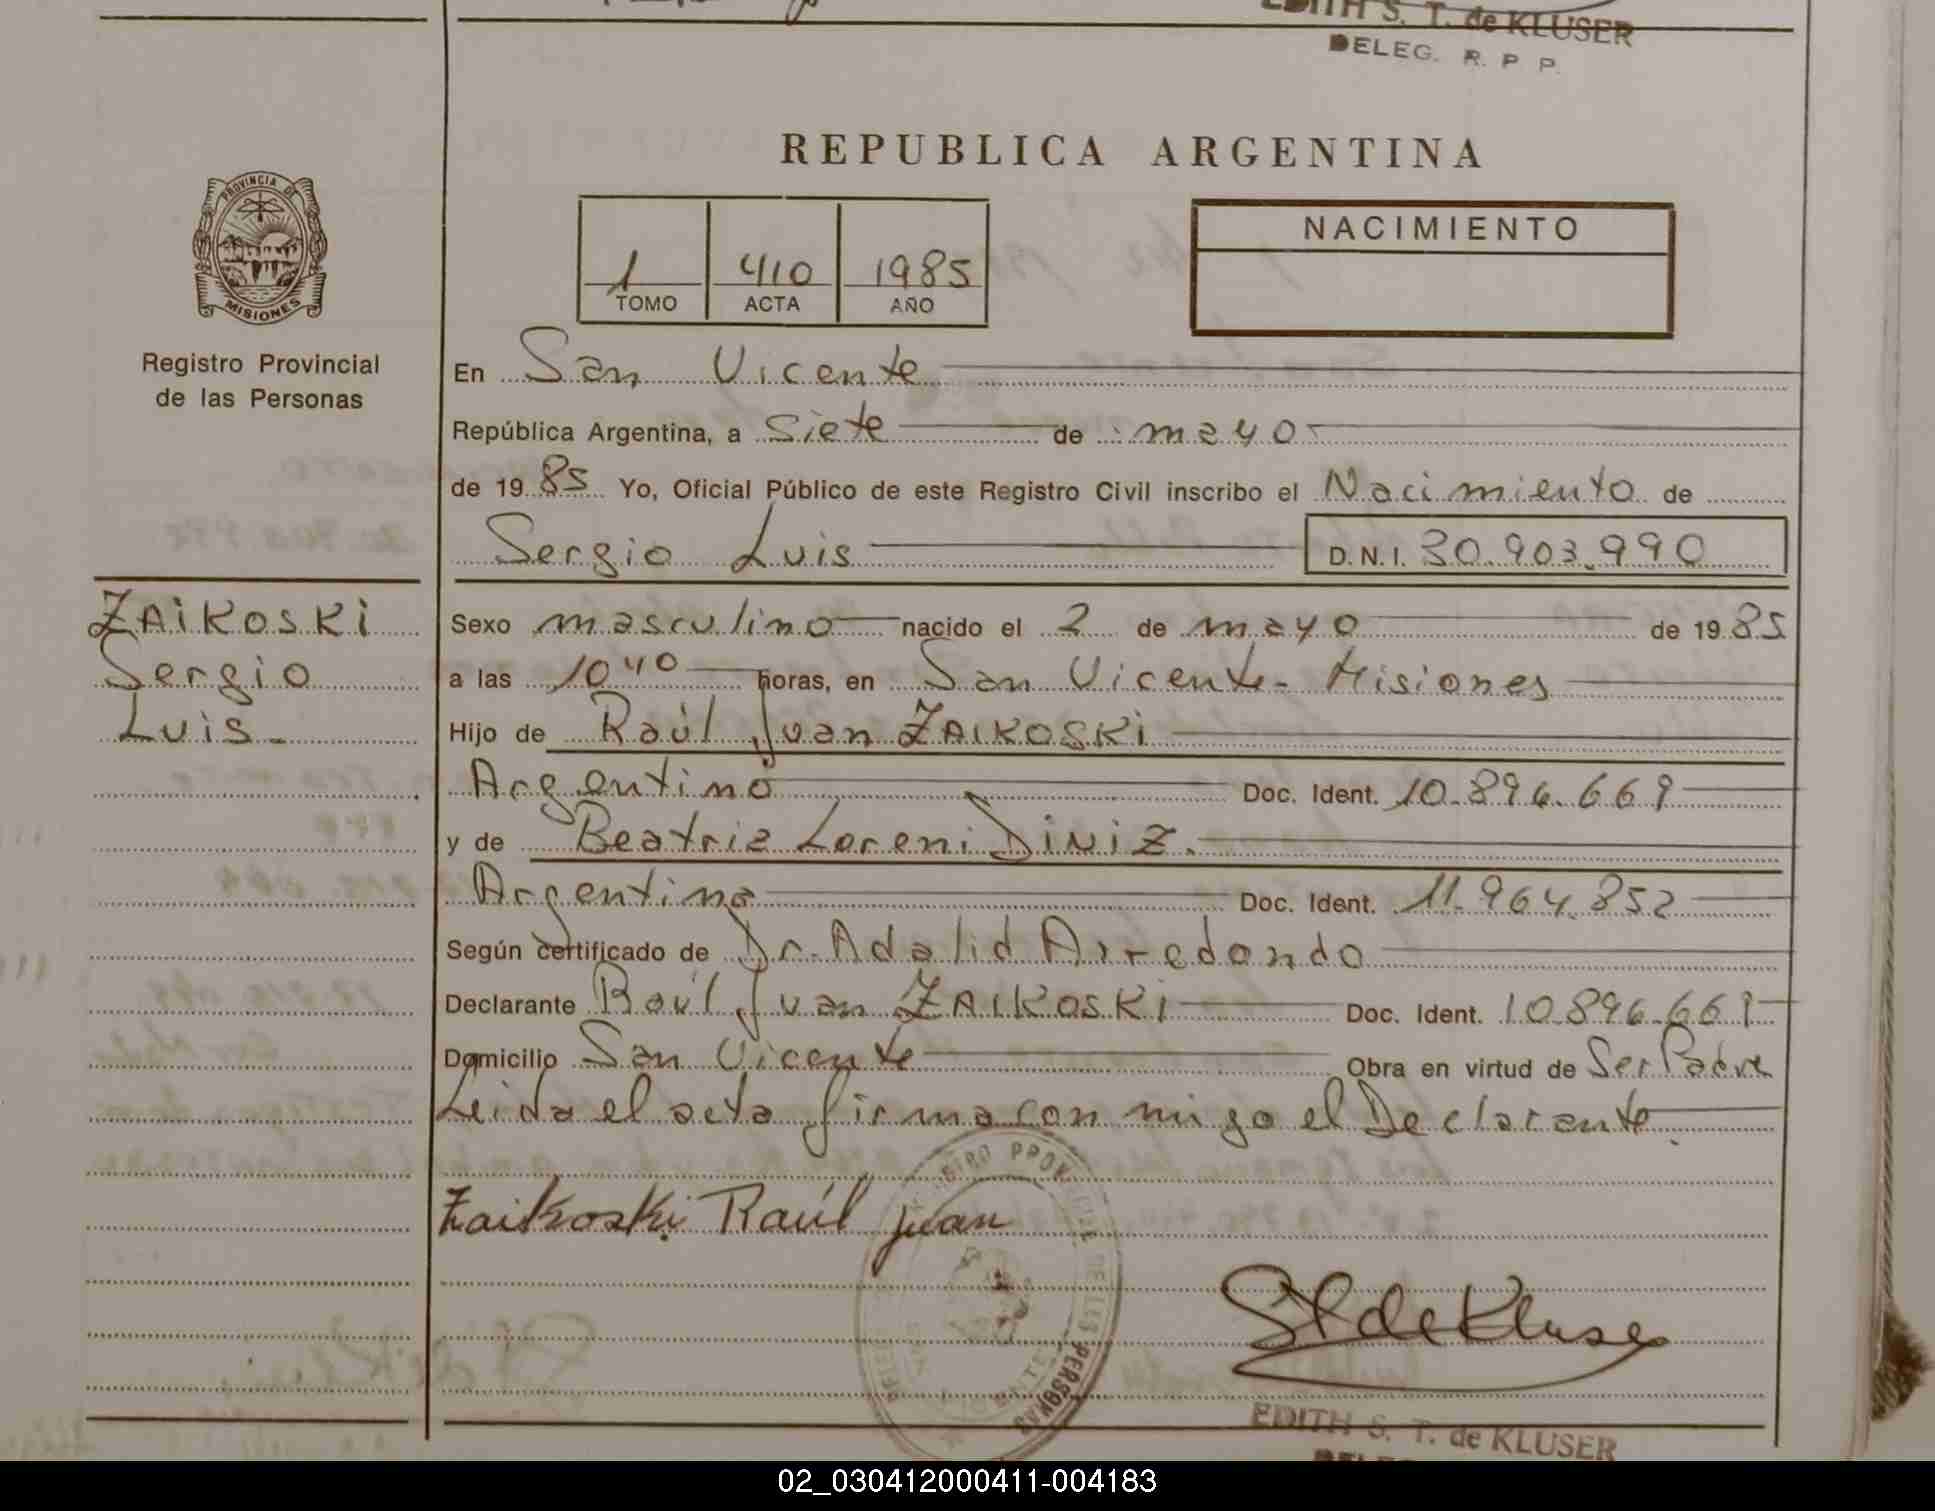 EDITH S. T. de KLUSER
DELEG. R. P P.
REPUBLICA ARGENTINA
PROVINCIA DE
MISIONES
Registro Provincial
de las Personas
1 410 1985
TOMO ACTA AÑO
NACIMIENTO
En San Vicente
República Argentina, a siete de mayo
de 1985 Yo, Oficial Público de este Registro Civil inscribo el Nacimiento de
Sergio Luis D.N.I. 30.903.990
ZAIKOSKI
Sergio
Luis.-
Sexo masculino nacido el 2 de mayo de 1985
a las 10 40 horas, en San Vicente - Misiones
Hijo de Raúl Juan ZAIKOSKI
Argentino Doc. Ident. 10.896.669
y de Beatriz Loreni DINIZ.
Argentina Doc. Ident. 11.964.852
Según certificado de Dr. Adalid Arredondo
Declarante Raúl Juan ZAIKOSKI Doc. Ident. 10.896.669
Domicilio San Vicente Obra en virtud de Ser Padre
Leida el acta firma con migo el Declarante.
Zaikoski Raúl juan
REGISTRO PROVINCIAL DE LAS PERSONAS
ST de Kluser
EDITH S. T. de KLUSER
02_030412000411-004183